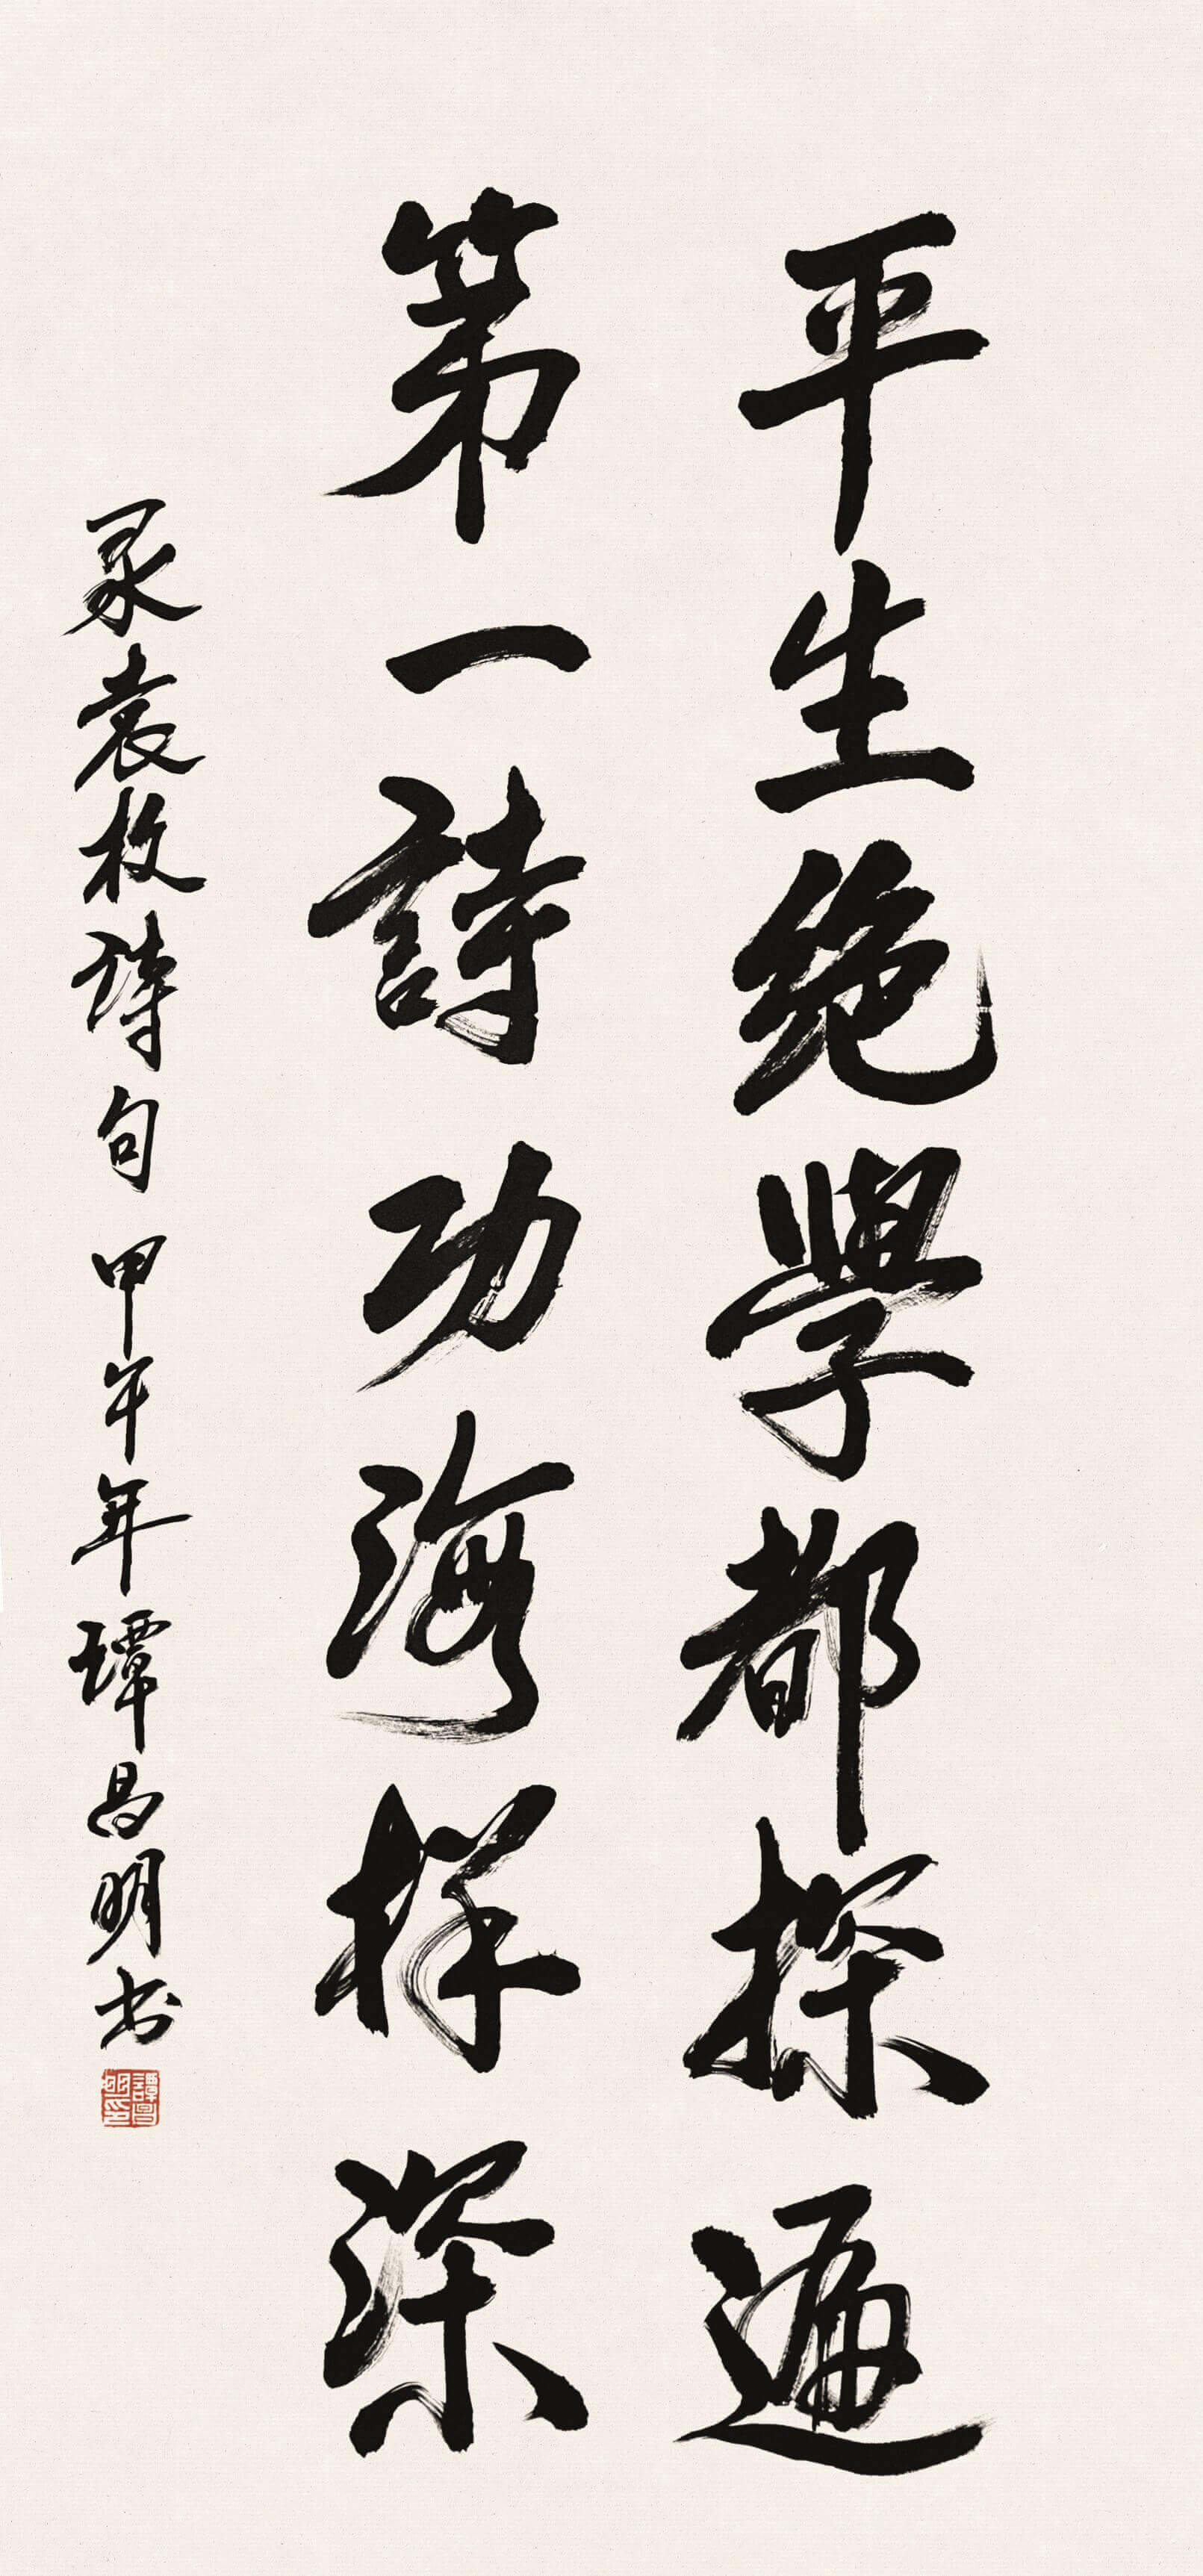 平生绝學都探遍
第一詩功海樣深
录袁枚诗句甲午年譚昌明书
譚昌明印